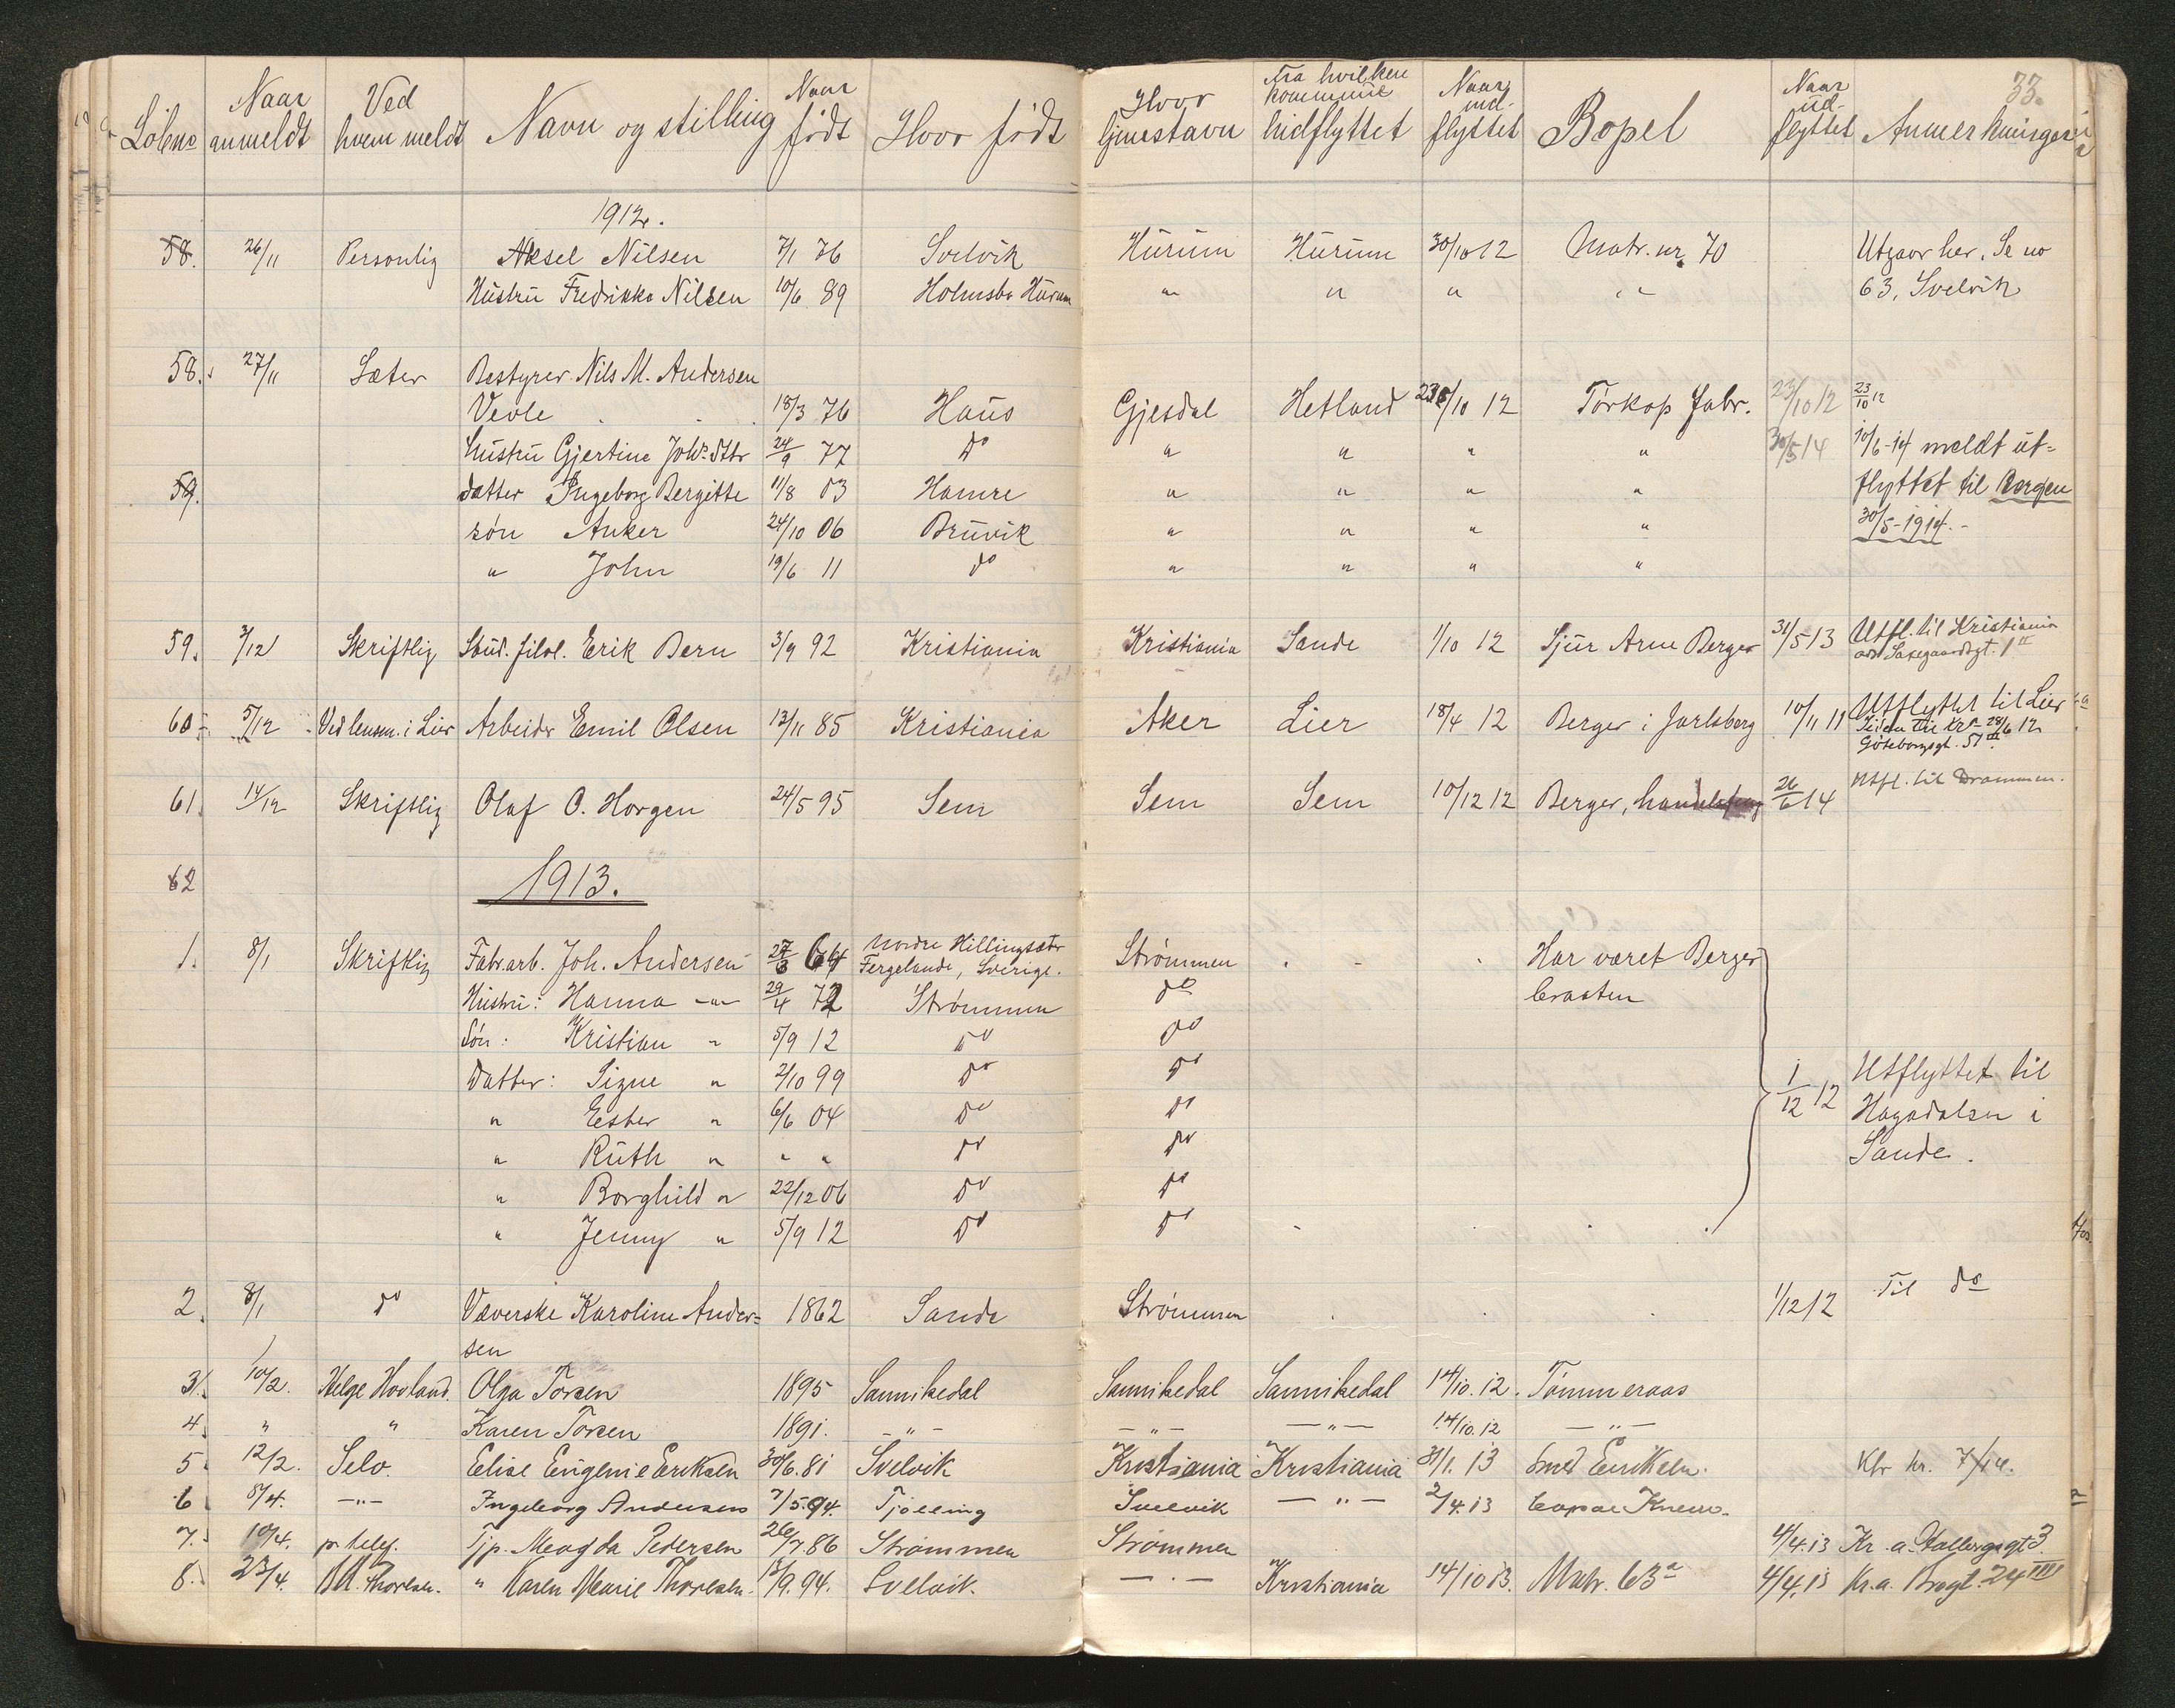 33.
Löbno Naar anmeldt Ved hvem meldt Navn og stilling Naar födt Hvor födt Hvor hjemestavn Fra hvilken kommune hidflyttet Naar ind-flyttet Bopel Naar ud-flyttet Anmerkninger
1912.
58. 26/11 Personlig Aksel Nilsen 7/1 76 Svelvik Hurum Hurum 30/10 12 Matr. nr. 70 Utgaar her. Se no
Hustru Fredrikke Nilsen 10/6 89 Holmsbo Hurum " " " " 63, Svelvik
58. 27/11 Sæter Bestyrer Nils M. Andersen
Vevle 18/3 76 Haus Gjesdal Hetland 23/10 12 Torkop Fabr. 23/10 12 23/10 12
Hustru Gjertine Johs.dttr 24/9 77 Do " " " " 30/5 14 10/6-14 meldt ut=
59. datter Ingeborg Bergitte 11/8 03 Hamre " " " " flyttet til Bergen
sön Anker 24/10 06 Bruvik " " " " 30/5-1914.-
" John 19/6 11 do " " " "
59. 3/12 Skriftlig Stud. filol. Erik Bern 3/9 92 Kristiania Kristiania Sande 1/10 12 Sjur Arne Berger 31/5 13 Utfl. til Kristiania
adr Saxegaardsgt. 1 II
60 5/12 Ved lensm. i Lier Arbeider Emil Olsen 13/11 85 Kristiania Aker Lier 18/4 12 Berger i Jarlsberg 10/11 11 Utflyttet til Lier
Siden til Kra 28/6 12
Göteborggt. 51 III.
61. 14/12 Skriftlig Olaf O. Horgen 24/5 95 Sem Sem Sem 10/12 12 Berger, 26/6 14 Utfl. til Drammen.
62 1913.
1. 8/1 Skriftlig Fabr.arb. Joh. Andersen 27/3 64 Nordre Hillingsæter
Fergelanda, Sverige. Strömmen Har været Berger
Hustru: Hanna -"- 29/4 72 Strömmen do braaten
Sön: Kristian " 5/9 12 do do
Datter: Signe " 2/10 99 do do 1/12 12 Utflyttet til
" Ester " 6/6 04 do do Hagadalen i
" Ruth " " " do do Sande.
" Borghild " 22/12 06 do do
" Jenny " 5/9 12 do do
2. 8/1 do Væverske Karoline Ander=
sen 1862 Sande Strömmen 1/12 12 Til do
3. 10/2. Helge Hovland. Olga Torsen 1895 Sannikedal Sannikedal Sannikedal 14/10.12. Tömmeraas
4. " " Karen Torsen 1891. -"- -"- -"- 14/10.12 -"-
5. 12/2. Selv. Elise Eugenie Eriksen 30/6.81 Svelvik Kristiania Kristiania 31/1.13 Smed Eriksen. Kfr nr. 7/14.
6. 8/4. -"- Ingeborg Andersen 7/5.94. Tjölling Svelvik -"- 2/4.13
7. 10/4. pr. telef. Tjp. Magda Pedersen 26/7.86 Strömmen Strömmen 4/4.13 Kr.a. 3
8. 23/4. M. Thorlsen. " Karen Marie Thorlsen. 13/9.94. Svelvik. -"- Kristiania 14/10 13. Matr. 63a 4/4.13 Kr.a. 24 III